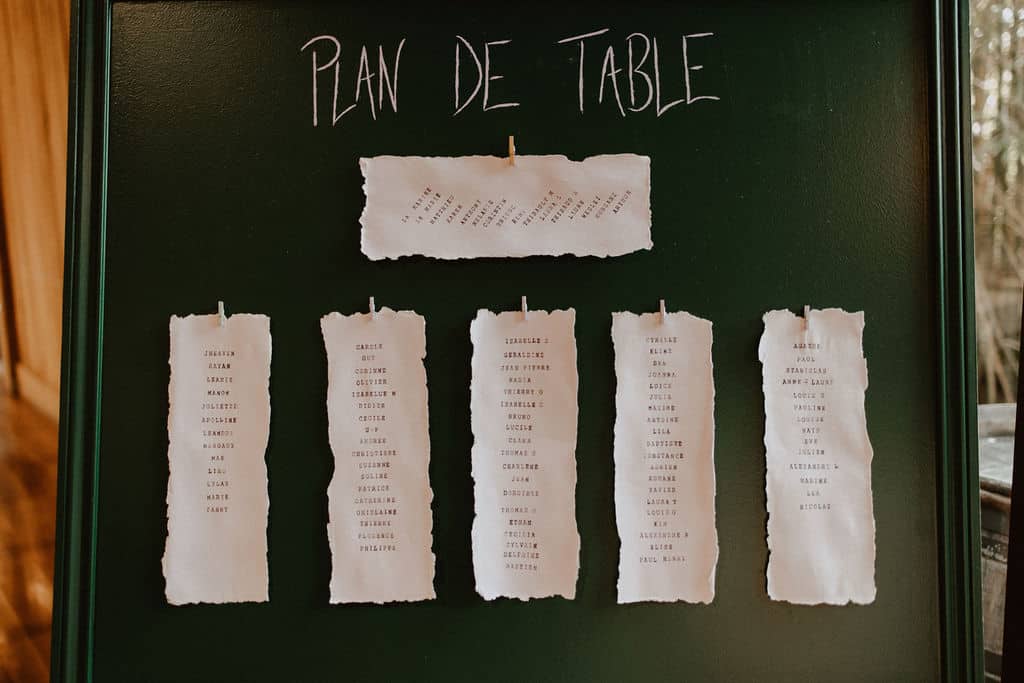 PLAN DE TABLE
LA MARIEE
LE MARIE
MATTHIEU
KAREN
ANTHONY
MELANIE
CORENTIN
THIBAULT M
LAURE
ARTHUR
RAYAN
LEANIE
MANON
JULIETTE
APOLLINE
LEANDRE
MARGAUX
MAE
LINO
LYLAS
MARIE
FANNY
CAROLE
GUY
CORINNE
OLIVIER
ISABELLE M
DIDIER
CECILE
ANDREE
CHRISTIANE
SUZANNE
SOLINE
PATRICK
CATHERINE
GHISLAINE
THIERRY
FLORENCE
PHILIPPE
ISABELLE S
GERALDINE
JEAN PIERRE
NADIA
THIERRY G
ISABELLE G
BRUNO
LUCILE
CLARA
THOMAS G
CHARLENE
JEAN
DOROTHEE
THOMAS G
ETHAN
CECILIA
SYLVAIN
DELPHINE
CYRILLE
ELINE
JOANNA
LOICK
JULIE
MAXIME
ANTOINE
LILA
BAPTISTE
CONSTANCE
ADRIEN
XAVIER
LAURA T
LOUIS G
KIM
ALEXANDRE R
ELISE
PAUL HENRY
AGATHE
PAUL
STANISLAS
ANNE LAURE
LOUIS S
PAULINE
LOUISE
EVE
JULIEN
ALEXANDRE L
MARINE
LEA
NICOLAS